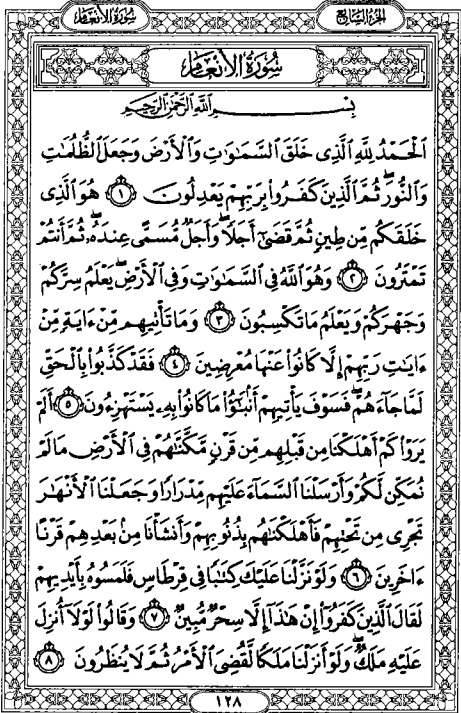 سُورَةُ الأَنْعَامِ
الجُزْءُ السَّابِعُ
سُورَةُ الأَنْعَامِ
بِسْمِ ٱللَّهِ ٱلرَّحْمَٰنِ ٱلرَّحِيمِ
ٱلْحَمْدُ لِلَّهِ ٱلَّذِى خَلَقَ ٱلسَّمَٰوَٰتِ وَٱلْأَرْضَ وَجَعَلَ ٱلظُّلُمَٰتِ
وَٱلنُّورَ ۖ ثُمَّ ٱلَّذِينَ كَفَرُوا۟ بِرَبِّهِمْ يَعْدِلُونَ ١ هُوَ ٱلَّذِى
خَلَقَكُم مِّن طِينٍ ثُمَّ قَضَىٰٓ أَجَلًا ۖ وَأَجَلٌ مُّسَمًّى عِندَهُۥ ۖ ثُمَّ أَنتُمْ
تَمْتَرُونَ ٢ وَهُوَ ٱللَّهُ فِى ٱلسَّمَٰوَٰتِ وَفِى ٱلْأَرْضِ ۖ يَعْلَمُ سِرَّكُمْ
وَجَهْرَكُمْ وَيَعْلَمُ مَا تَكْسِبُونَ ٣ وَمَا تَأْتِيهِم مِّنْ ءَايَةٍ مِّنْ
ءَايَٰتِ رَبِّهِمْ إِلَّا كَانُوا۟ عَنْهَا مُعْرِضِينَ ٤ فَقَدْ كَذَّبُوا۟ بِٱلْحَقِّ
لَمَّا جَآءَهُمْ ۖ فَسَوْفَ يَأْتِيهِمْ أَنۢبَٰٓؤُا۟ مَا كَانُوا۟ بِهِۦ يَسْتَهْزِءُونَ ٥ أَلَمْ
يَرَوْا۟ كَمْ أَهْلَكْنَا مِن قَبْلِهِم مِّن قَرْنٍ مَّكَّنَّٰهُمْ فِى ٱلْأَرْضِ مَا لَمْ
نُمَكِّن لَّكُمْ وَأَرْسَلْنَا ٱلسَّمَآءَ عَلَيْهِم مِّدْرَارًا وَجَعَلْنَا ٱلْأَنْهَٰرَ
تَجْرِى مِن تَحْتِهِمْ فَأَهْلَكْنَٰهُم بِذُنُوبِهِمْ وَأَنشَأْنَا مِنۢ بَعْدِهِمْ قَرْنًا
ءَاخَرِينَ ٦ وَلَوْ نَزَّلْنَا عَلَيْكَ كِتَٰبًا فِى قِرْطَاسٍ فَلَمَسُوهُ بِأَيْدِيهِمْ
لَقَالَ ٱلَّذِينَ كَفَرُوٓا۟ إِنْ هَٰذَآ إِلَّا سِحْرٌ مُّبِينٌ ٧ وَقَالُوا۟ لَوْلَآ أُنزِلَ
عَلَيْهِ مَلَكٌ ۖ وَلَوْ أَنزَلْنَا مَلَكًا لَّقُضِىَ ٱلْأَمْرُ ثُمَّ لَا يُنظَرُونَ ٨
١٢٨